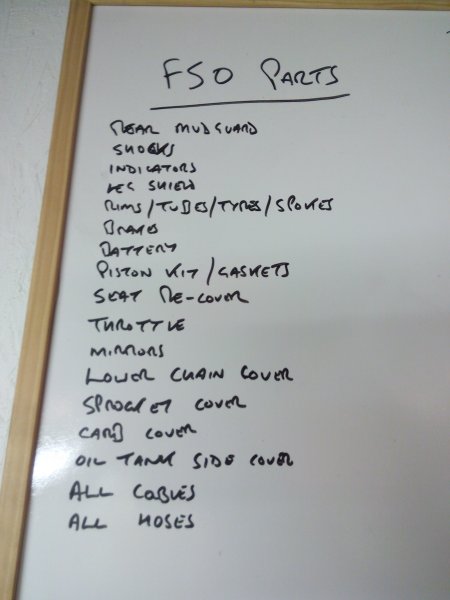 FS0 PARTS
REAR MUDGUARD
SHOCKS
INDICATORS
LEG SHIELD
RIMS/TUBES/TYRES/SPOKES
BRAKES
BATTERY
PISTON KIT/GASKETS
SEAT RE-COVER
THROTTLE
MIRRORS
LOWER CHAIN COVER
SPROCKET COVER
CARB COVER
OIL TANK SIDE COVER
ALL CABLES
ALL HOSES